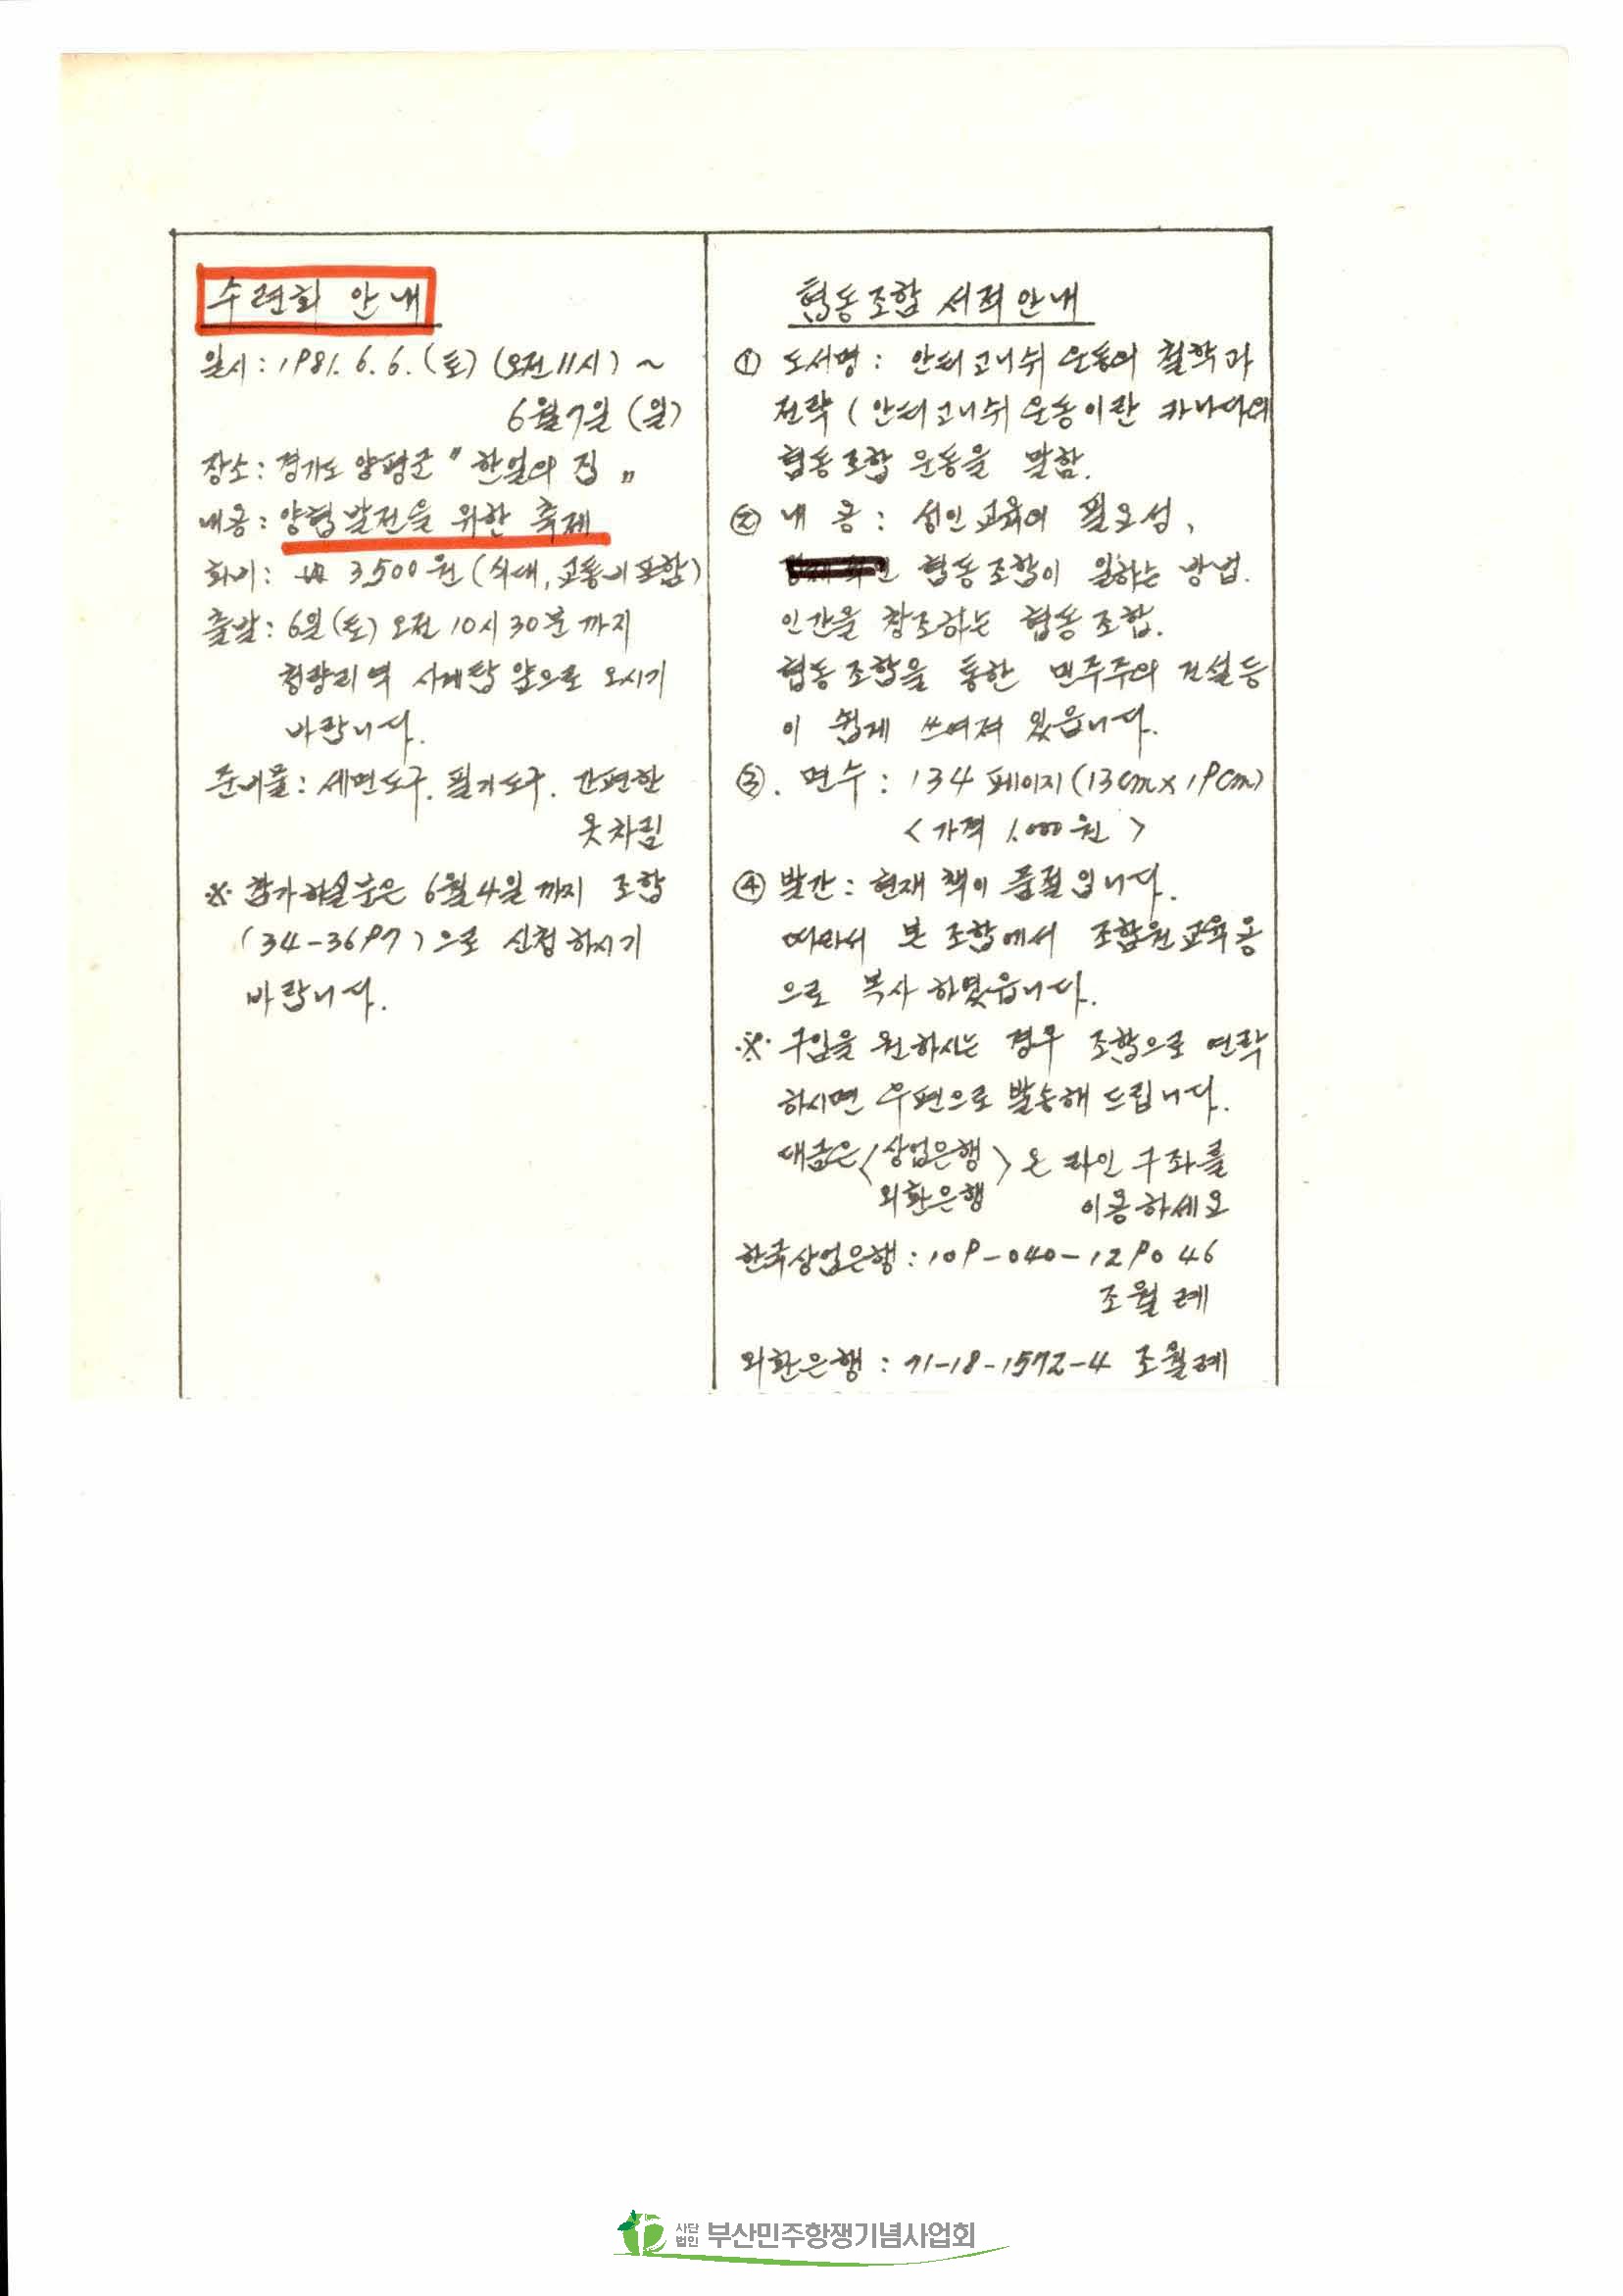 수련회 안내
일시 : 1981. 6. 6. (토) (오전 11시) ~
6월 7일 (일)
장소 : 경기도 양평군 " 한얼의 집 "
내용 : 양협발전을 위한 축제
회비 : 3,500원 (식대, 교통비 포함)
출발 : 6일 (토) 오전 10시 30분 까지
청량리역 시계탑 앞으로 오시기
바랍니다.
준비물 : 세면도구. 필기도구. 간편한
옷차림
※ 참가하실 분은 6월 4일 까지 조합
(34-3697) 으로 신청하시기
바랍니다.
협동조합 서적안내
① 도서명 : 안티고니쉬 운동의 철학과
전략 ( 안티고니쉬 운동이란 카나다의
협동조합 운동을 말함.
② 내 용 : 성인교육의 필요성,
협동조합이 일하는 방법.
인간을 창조하는 협동조합.
협동조합을 통한 민주주의 건설등
이 쉽게 쓰여져 있읍니다.
③. 면수 : 134 페이지 (13cm x 19cm)
< 가격 1,000원 >
④ 발간 : 현재 책이 품절입니다.
따라서 본 조합에서 조합원교육용
으로 복사 하였읍니다.
※ 구입을 원하시는 경우 조합으로 연락
하시면 우편으로 발송해 드립니다.
대금은 < 상업은행 > 온라인 구좌를
외환은행 이용하세요
한국상업은행 : 109-040-129046
조월례
외환은행 : 71-18-1572-4 조월례
사단법인 부산민주항쟁기념사업회